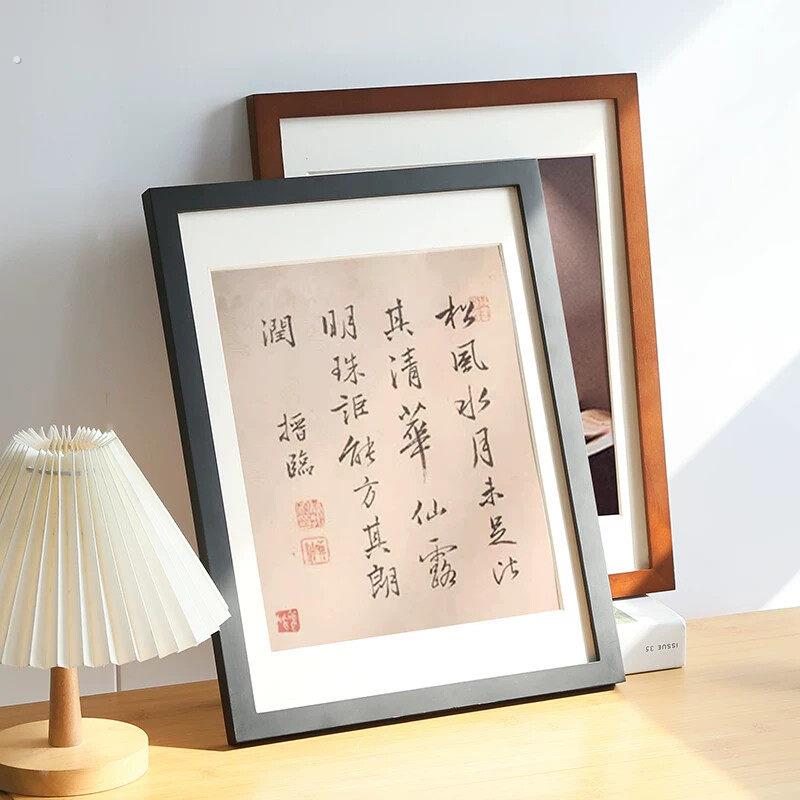 松風水月未足比
其清華仙露
明珠詎能方其朗
潤
搢臨
ISSUE 35